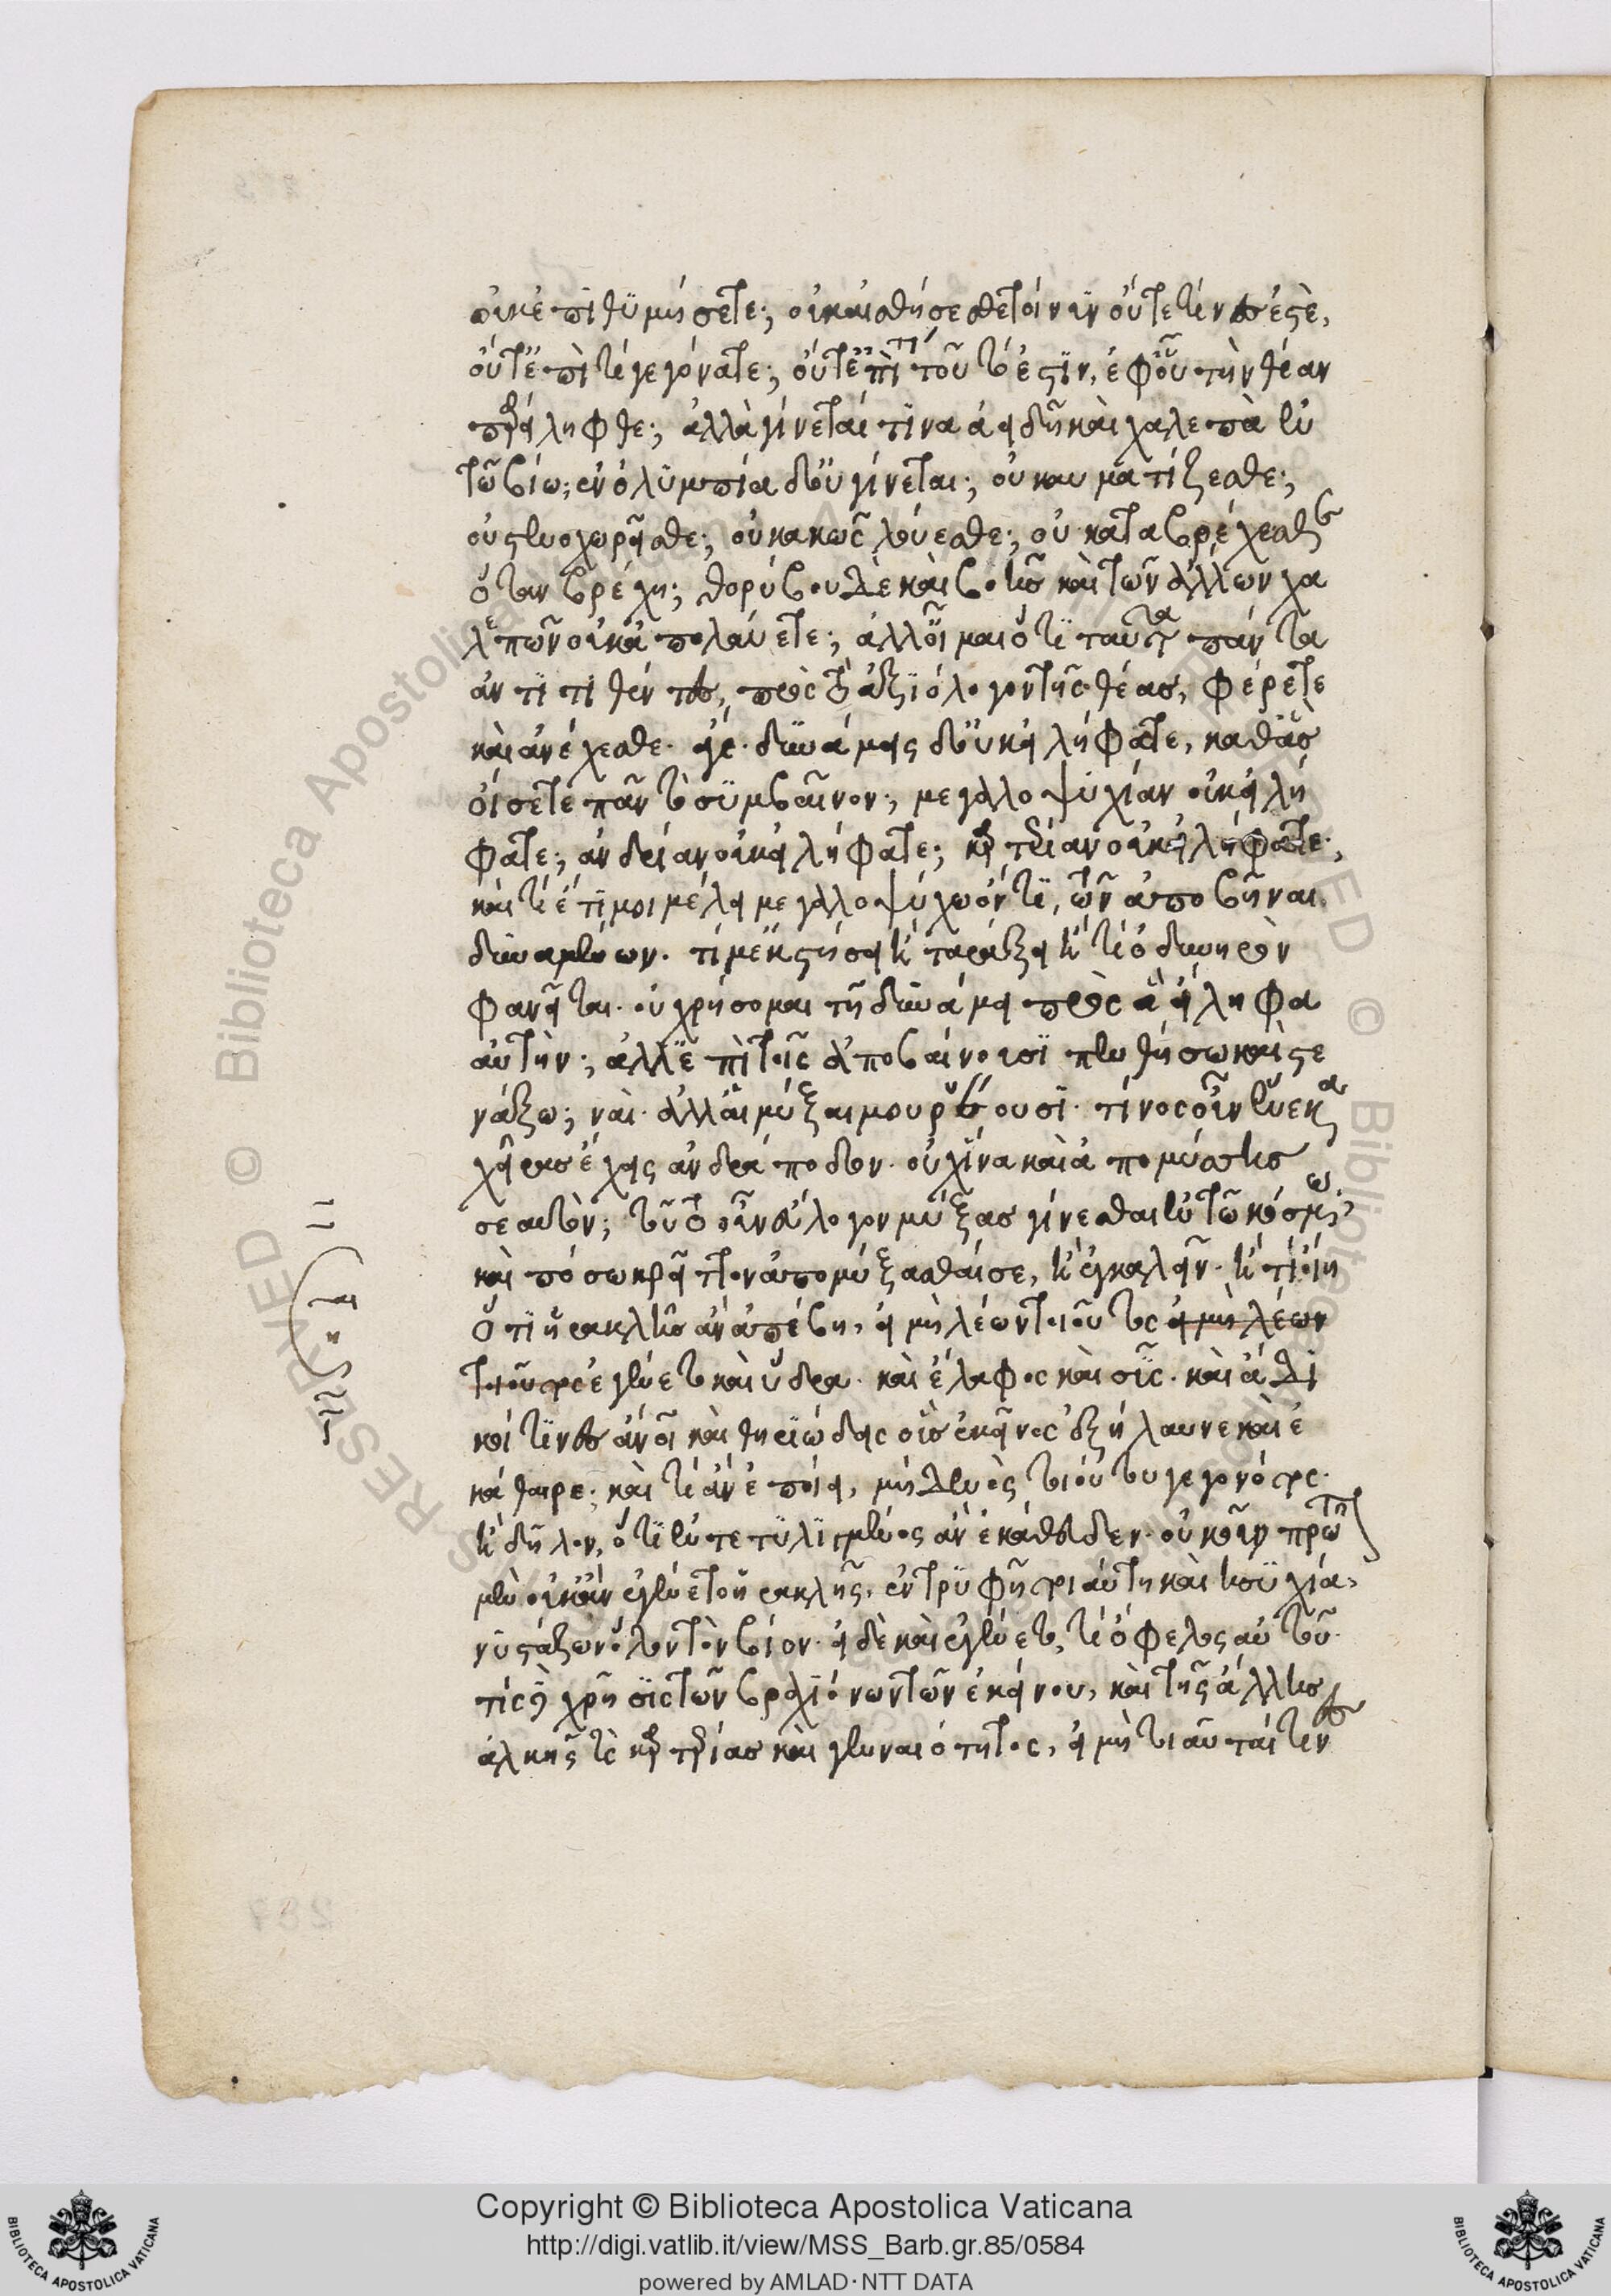 οὐκ ἐπιθυμήσετε; οὐκ αἰσθήσεσθε τοίνυν οὔτε τίνες ἐστὲ,
οὔτε ἐπὶ τί γεγόνατε; οὔτε ἐπὶ τί τοῦτό ἐστιν, ἐφ' οὗ τὴν θέαν
παρείληφθε; ἀλλὰ γίνεταί τινα ἀηδῆ καὶ χαλεπὰ ἐν
τῷ βίῳ; ἐν ὀλυμπίᾳ δ' οὐ γίνεται; οὐ καυματίζεσθε;
οὐ στενοχωρεῖσθε; οὐ κακῶς λούεσθε; οὐ καταβρέχεσθε
ὅταν βρέχῃ; θορύβου δὲ καὶ βοῆς καὶ τῶν ἄλλων χα
λεπῶν οὐκ ἀπολαύετε; ἀλλ' οἶμαι ὅτι ταῦτα πάντα
ἀντιτιθέντες, πρὸς τὸ ἀξιόλογον τῆς θέας, φέρετε
καὶ ἀνέχεσθε. ἄγε. δυνάμεις δ' οὐκ εἰλήφατε, καθ' ἃς
οἴσετε πᾶν τὸ συμβαῖνον; μεγαλοψυχίαν οὐκ εἰλή
φατε; ἀνδρείαν οὐκ εἰλήφατε; καρτερίαν οὐκ εἰλήφατε;
καὶ τί ἔτι μοι μέλει μεγαλοψύχῳ ὄντι, τῶν ἀποβῆναι
δυναμένων. τί με ἐκστήσει καὶ ταράξει καὶ τί ὀδυνηρὸν
φανεῖται. οὐ χρήσομαι τῇ δυνάμει πρὸς ἃ εἴληφα
αὐτὴν; ἀλλ' ἐπὶ τοῖς ἀποβαίνουσι πενθήσω καὶ στε
νάξω; ναὶ. ἀλλ' αἱ μύξαι μου ῥέουσι. τίνος οὖν ἕνεκα
χεῖρας ἔχεις ἀνδράποδον. οὐχ ἵνα καὶ ἀπομύσσῃς
σεαυτόν; τοῦτο οὖν εὔλογον μύξας γίνεσθαι ἐν τῷ κόσμῳ;
καὶ πόσῳ κρεῖττον ἀπομύξασθαί σε, καὶ ἐγκαλεῖν. καὶ τί οἴει
ὅτι ἡρακλῆς ἂν ἀπέβη, εἰ μὴ λέων τοιοῦτος εἰ μὴ λέων
τοιοῦτος ἐγένετο καὶ ὕδρα. καὶ ἔλαφος καὶ σῦς. καὶ ἄδι
κοί τινες ἄνοι καὶ θηριώδεις οὓς ἐκεῖνος ἐξήλαυνε καὶ ἐ
κάθαιρε; καὶ τί ἂν ἐποίει, μηδενὸς τοιούτου γεγονότος.
καὶ δῆλον, ὅτι ἐντετυλιγμένος ἂν ἐκάθευδεν. οὐκοῦν πρῶτον
μὲν οὐκ ἂν ἐγένετο ἡρακλῆς. ἐν τρυφῇ τοιαύτῃ καὶ ἡσυχίᾳ,
νυστάζων ὅλον τὸν βίον. εἰ δὲ καὶ ἐγένετο, τί ὄφελος αὐτοῦ.
τίς δὲ χρῆσις τῶν βραχιόνων τῶν ἐκείνου, καὶ τῆς ἄλλης
ἀλκῆς τὲ καρτερίας καὶ γενναιότητος, εἰ μὴ τοιαῦταί τινες